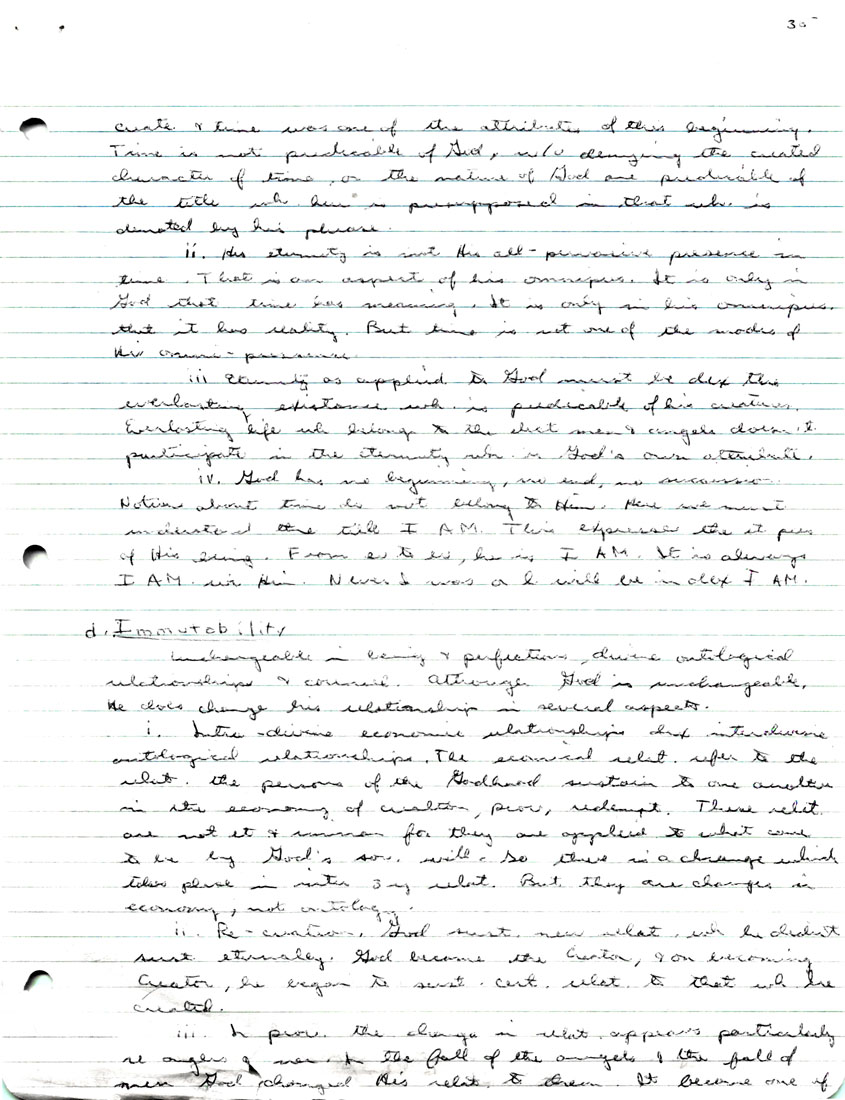 30
create & time was one of the attributes of this beginning.
Time is not predicable of God, w/o denying the created
character of time, or the nature of God are predicable of
the title wh. is presupposed in that wh. is
denoted by his phrase.
ii. His eternity is not His all-pervasive presence in
time. That is an aspect of his omnipres. It is only in
God that time has meaning. It is only in his omnipres.
that it has reality. But time is not one of the modes of
His omni-presence.
iii Eternity as applied to God must be dex the
everlasting existance wh. is predicable of his creatures.
Everlasting life wh belongs to the elect men & angels doesn't
participate in the eternity wh is God's own attribute.
iv. God has no beginning, no end, no succession.
Notions about time do not belong to Him. Here we must
understand the title I AM. This expresses the et pres
of His being. From ev to ev, he is I AM. It is always
I AM with Him. Never I was or I will be in dex I AM.
d. Immutability
Unchangeable in being & perfections, divine ontological
relationships & council. Although God is unchangeable,
He does change his relationship in several aspects.
i. Intra-divine economic relationships dex interdivine
ontological relationships. The economical relat. refer to the
relat. the persons of the Godhead sustain to one another
in the economy of creation, prov, redempt. These relat.
are not et & for they are applied to what come
to be by God's sov. will. So there is a change which
takes place in inter 3-y relat. But they are changes in
economy, not ontology.
ii. Re-creation. God sust. new relat. wh he didn't
sust eternally. God became the Creator, & on becoming
Creator, he began to sust. cert. relat. to that wh he
created.
iii. In prov. the change in relat. appears particularly
re angels & men. In the fall of the angels & the fall of
men God changed His relat. to them. It became one of